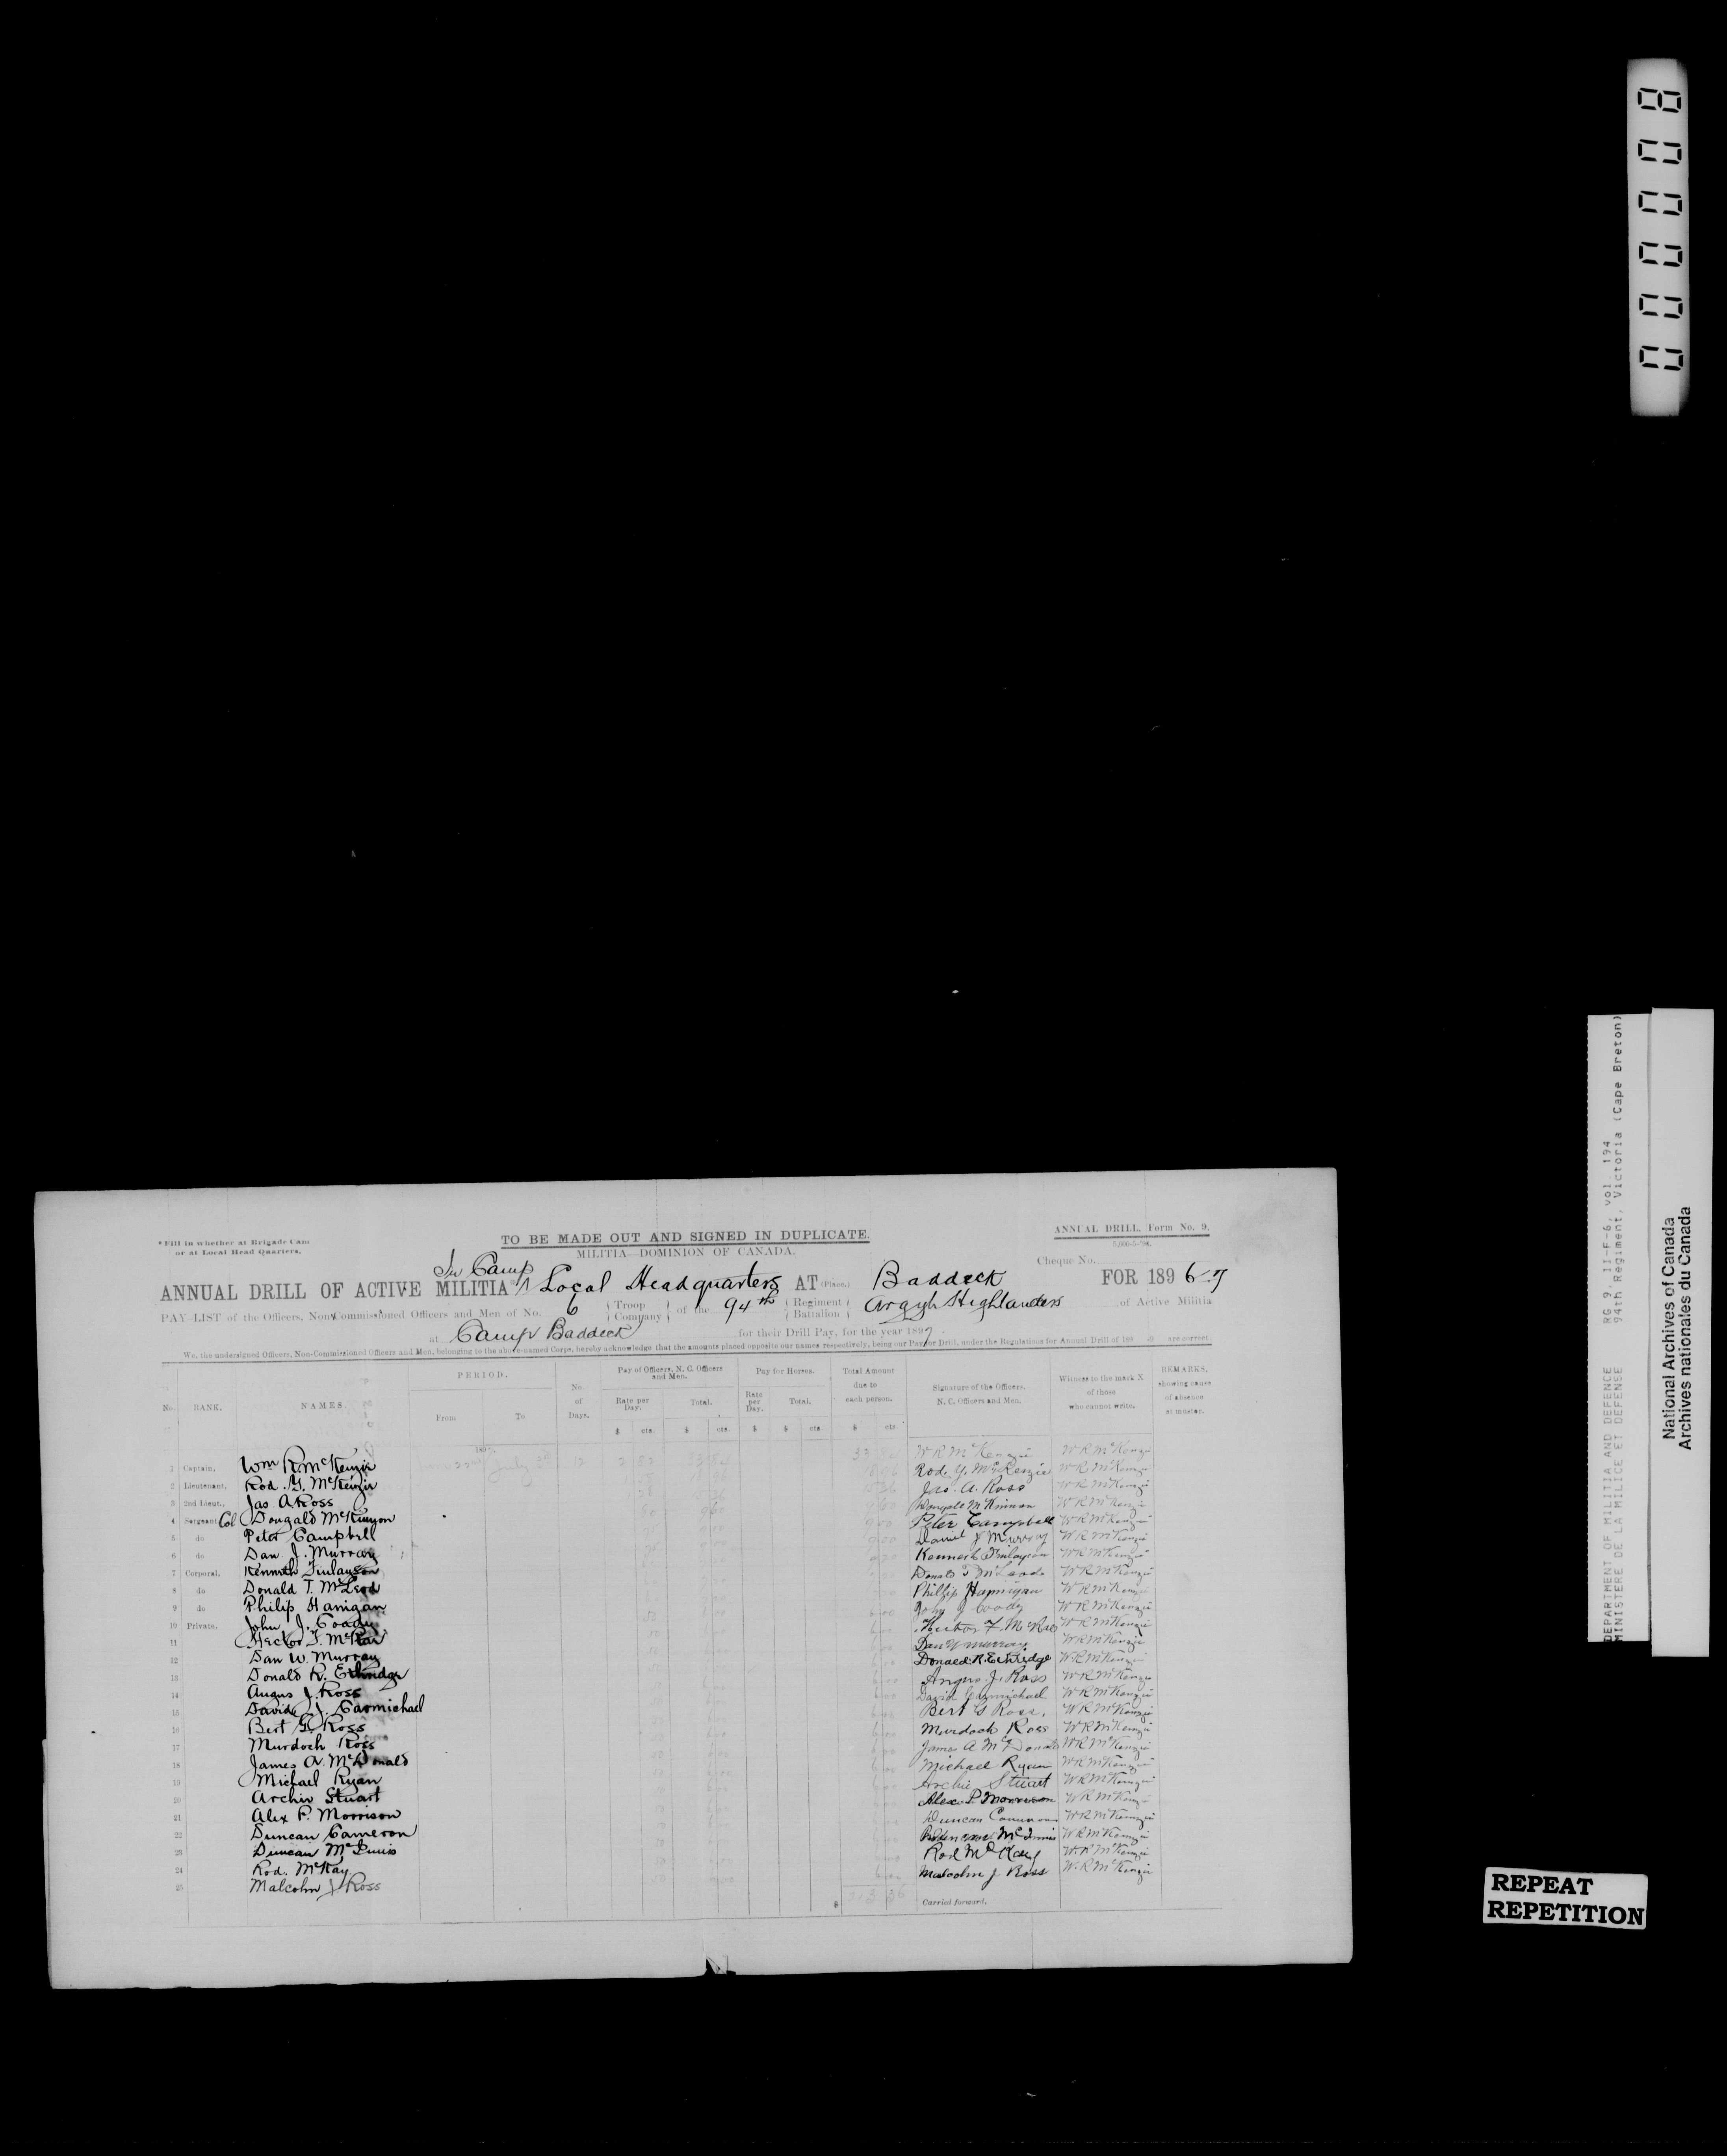 000008
* Fill in whether at Brigade Cam
or at Local Head Quarters.
TO BE MADE OUT AND SIGNED IN DUPLICATE.
MILITIA—DOMINION OF CANADA.
ANNUAL DRILL, Form No. 9.
Cheque No.
In Camp
ANNUAL DRILL OF ACTIVE MILITIA * Local Headquarters AT (Place.) Baddeck FOR 1896-7
PAY-LIST of the Officers, Non-Commissioned Officers and Men of No. 6 Troop Company of the 94th Regiment Battalion Argyle Highlanders of Active Militia
at Camp Baddeck for their Drill Pay, for the year 1897.
We, the undersigned Officers, Non-Commissioned Officers and Men, belonging to the above-named Corps, hereby acknowledge that the amounts placed opposite our names respectively, being our Pay for Drill, under the Regulations for Annual Drill of 189 are correct.
No. RANK. NAMES. PERIOD. From To No. of Days. Pay of Officers, N. C. Officers and Men. Rate per Day. Total. $ cts. $ cts. Pay for Horses. Rate per Day. Total. $ $ cts. Total Amount due to each person. $ cts. Signature of the Officers, N. C. Officers and Men. Witness to the mark X of those who cannot write. REMARKS, showing cause of absence at muster.
1 Captain, Wm R. McKenzie July 3rd 12 W R McKenzie W R McKenzie
2 Lieutenant, Rod. Y. McKenzie Rod. Y. McKenzie W R McKenzie
3 2nd Lieut., Jas A Ross Jas. A. Ross W R McKenzie
4 Sergeant Col Dougald McKinnon Dougald McKinnon W R McKenzie
5 do Peter Campbell Peter Campbell W R McKenzie
6 do Dan J. Murray Daniel J Murray W R McKenzie
7 Corporal, Kenneth Finlayson Kenneth Finlayson W R McKenzie
8 do Donald T. McLeod Donald T McLeod W R McKenzie
9 do Philip Hanigan Phillip Hannigan W R McKenzie
10 Private. John J. Coady John J Coady W R McKenzie
11 Hector F. McRae Hector F. McRae W R McKenzie
12 Dan W. Murray Dan W Murray W R McKenzie
13 Donald R. Ethridge Donald R. Ethridge W R McKenzie
14 Angus J. Ross Angus J. Ross W R McKenzie
15 David J. Carmichael David Carmichael W R McKenzie
16 Bert G. Ross Bert G Ross. W R McKenzie
17 Murdoch Ross Murdoch Ross W R McKenzie
18 James A. McDonald James A McDonald W R McKenzie
19 Michael Ryan Michael Ryan W R McKenzie
20 Archie Stuart Archie Stuart W R McKenzie
21 Alex P. Morrison Alex P Morrison W R McKenzie
22 Duncan Cameron Duncan Cameron W R McKenzie
23 Duncan McInnis McInnis W R McKenzie
24 Rod. McKay Rod McKay W R McKenzie
25 Malcolm J Ross Malcolm J Ross W R McKenzie
$ 213 36 Carried forward.
DEPARTMENT OF MILITIA AND DEFENCE RG 9, II-F-6, vol. 194
MINISTERE DE LA MILICE ET DEFENSE 94th Regiment, Victoria (Cape Breton)
National Archives of Canada
Archives nationales du Canada
REPEAT
REPETITION